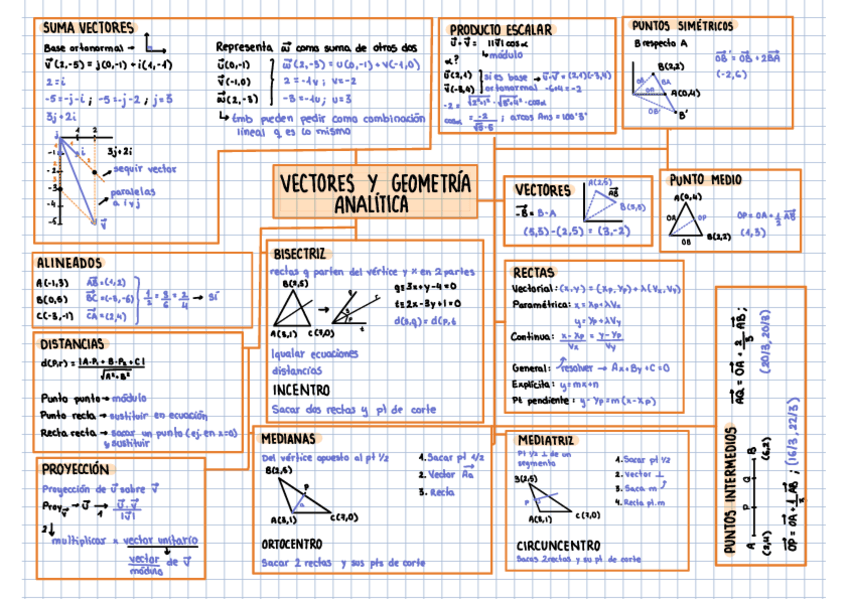 SUMA VECTORES
Base ortonormal →
v⃗(2,-5) = j(0,-1) + i(1,-1)
2 = i
-5 = -j - i ; -5 = -j - 2 ; j = 3
3j + 2i
2
4
i
j
-1
-2
-3
-4
-5
3j + 2i
→ seguir vector
paralelas
a i y j
v⃗
Representa w⃗ como suma de otros dos
u⃗(0,-1)
v⃗(-1,0)
w⃗(2,-3)
w⃗(2,-3) = u(0,-1) + v(-1,0)
2 = -1v ; v = -2
-3 = -1u ; u = 3
↳ tmb pueden pedir como combinación
lineal q es lo mismo
PRODUCTO ESCALAR
↳ módulo
α?
si es base
ortonormal
-6+4 = -2
-2 =
cosα =
PUNTOS SIMÉTRICOS
B respecto A
OB' = OB + 2BA
(-2,6)
B(2,2)
A(0,4)
OB
BA
OB'
B'
VECTORES Y GEOMETRÍA
ANALÍTICA
VECTORES
= B - A
A(2,5)
AB
B(5,3)
(5,3) - (2,5) = (3,-2)
PUNTO MEDIO
A(0,4)
OA
OP
OB
B(2,2)
OP = OA + 1/2 AB
(1,3)
ALINEADOS
A(-1,3)
B(0,5)
C(-3,-1)
AB⃗ = (1,2)
BC⃗ = (-3,-6)
CA⃗ = (2,4)
1/2 = 3/6 = 2/4 → sí
BISECTRIZ
rectas q parten del vértice y x en 2 partes
B(2,5)
A(3,1) C(7,0)
q ≡ 3x + y - 4 = 0
t ≡ 2x - 3y + 1 = 0
Igualar ecuaciones
distancias
INCENTRO
Sacar dos rectas y pt de corte
RECTAS
Vectorial: (x,y) = (xp, yp) + λ(Vx, Vy)
Paramétrica: x = xp + λVx
y = yp + λVy
Continua: x - xp / Vx = y - yp / Vy
General: resolver → Ax + By + C = 0
Explícita: y = mx + n
Pt pendiente: y - yp = m(x - xp)
DISTANCIAS
d(P,r) = |A·P₁ + B·P₂ + C| / √A²+B²
Punto punto → módulo
Punto recta → sustituir en ecuación
Recta recta → sacar un punto (ej. en x=0)
y sustituir
PROYECCIÓN
Proyección de u⃗ sobre v⃗
multiplicar x vector unitario
vector de v⃗
módulo
MEDIANAS
Del vértice opuesto al pt 1/2
B(2,5)
P
A(3,1)
C(7,0)
1. Sacar pt 1/2
2. Vector
3. Recta
ORTOCENTRO
Sacar 2 rectas y sus pts de corte
MEDIATRIZ
Pt 1/2 ⊥ de un
segmento
B(2,5)
P
A(3,1)
C(7,0)
1. Sacar pt 1/2
2. Vector ⊥
3. Saca m
4. Recta pt. m
CIRCUNCENTRO
Sacas 2 rectas y su pt de corte
PUNTOS INTERMEDIOS
A
P
Q
B
(2,4)
(6,2)
(16/3, 22/3)
AQ = OA + 2/3 AB ;
(20/3, 20/3)